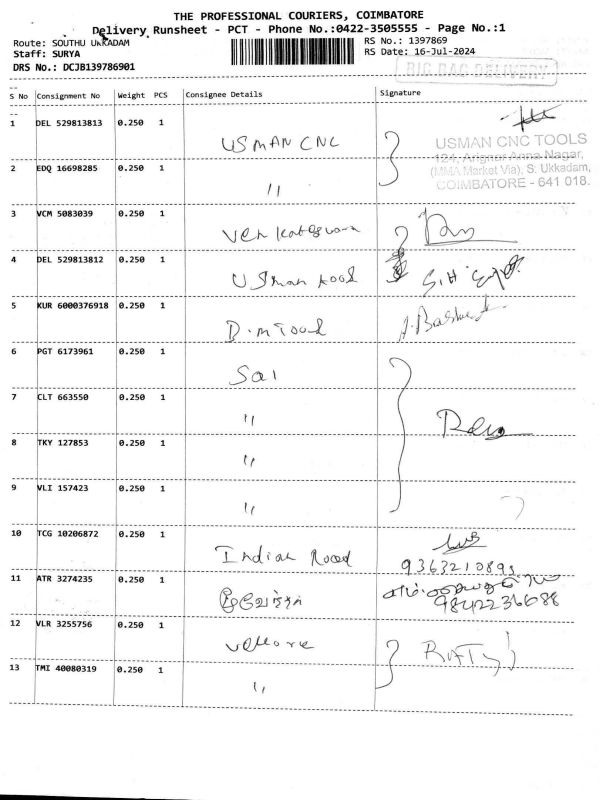 THE PROFESSIONAL COURIERS, COIMBATORE
Delivery Runsheet - PCT - Phone No.:0422-3505555 - Page No.:1
Route: SOUTHU UKKADAM
RS No.: 1397869
Staff: SURYA
RS Date: 16-Jul-2024
DRS No.: DCJB139786901
BIG BAG DELIVERY
S No Consignment No Weight PCS Consignee Details Signature
1 DEL 529813813 0.250 1 USMAN CNC
USMAN CNC TOOLS
124, Arignar Anna Nagar,
(MMA Market Via), S. Ukkadam,
COIMBATORE - 641 018.
2 EDQ 16698285 0.250 1 "
3 VCM 5083039 0.250 1
4 DEL 529813812 0.250 1 Usman tool
5 KUR 6000376918 0.250 1 D.m Tool
6 PGT 6173961 0.250 1 Sai
7 CLT 663550 0.250 1 "
8 TKY 127853 0.250 1 "
9 VLI 157423 0.250 1 "
10 TCG 10206872 0.250 1 Indian Road
9363210891
11 ATR 3274235 0.250 1
9842236688
12 VLR 3255756 0.250 1 vellore
13 TMI 40080319 0.250 1 "